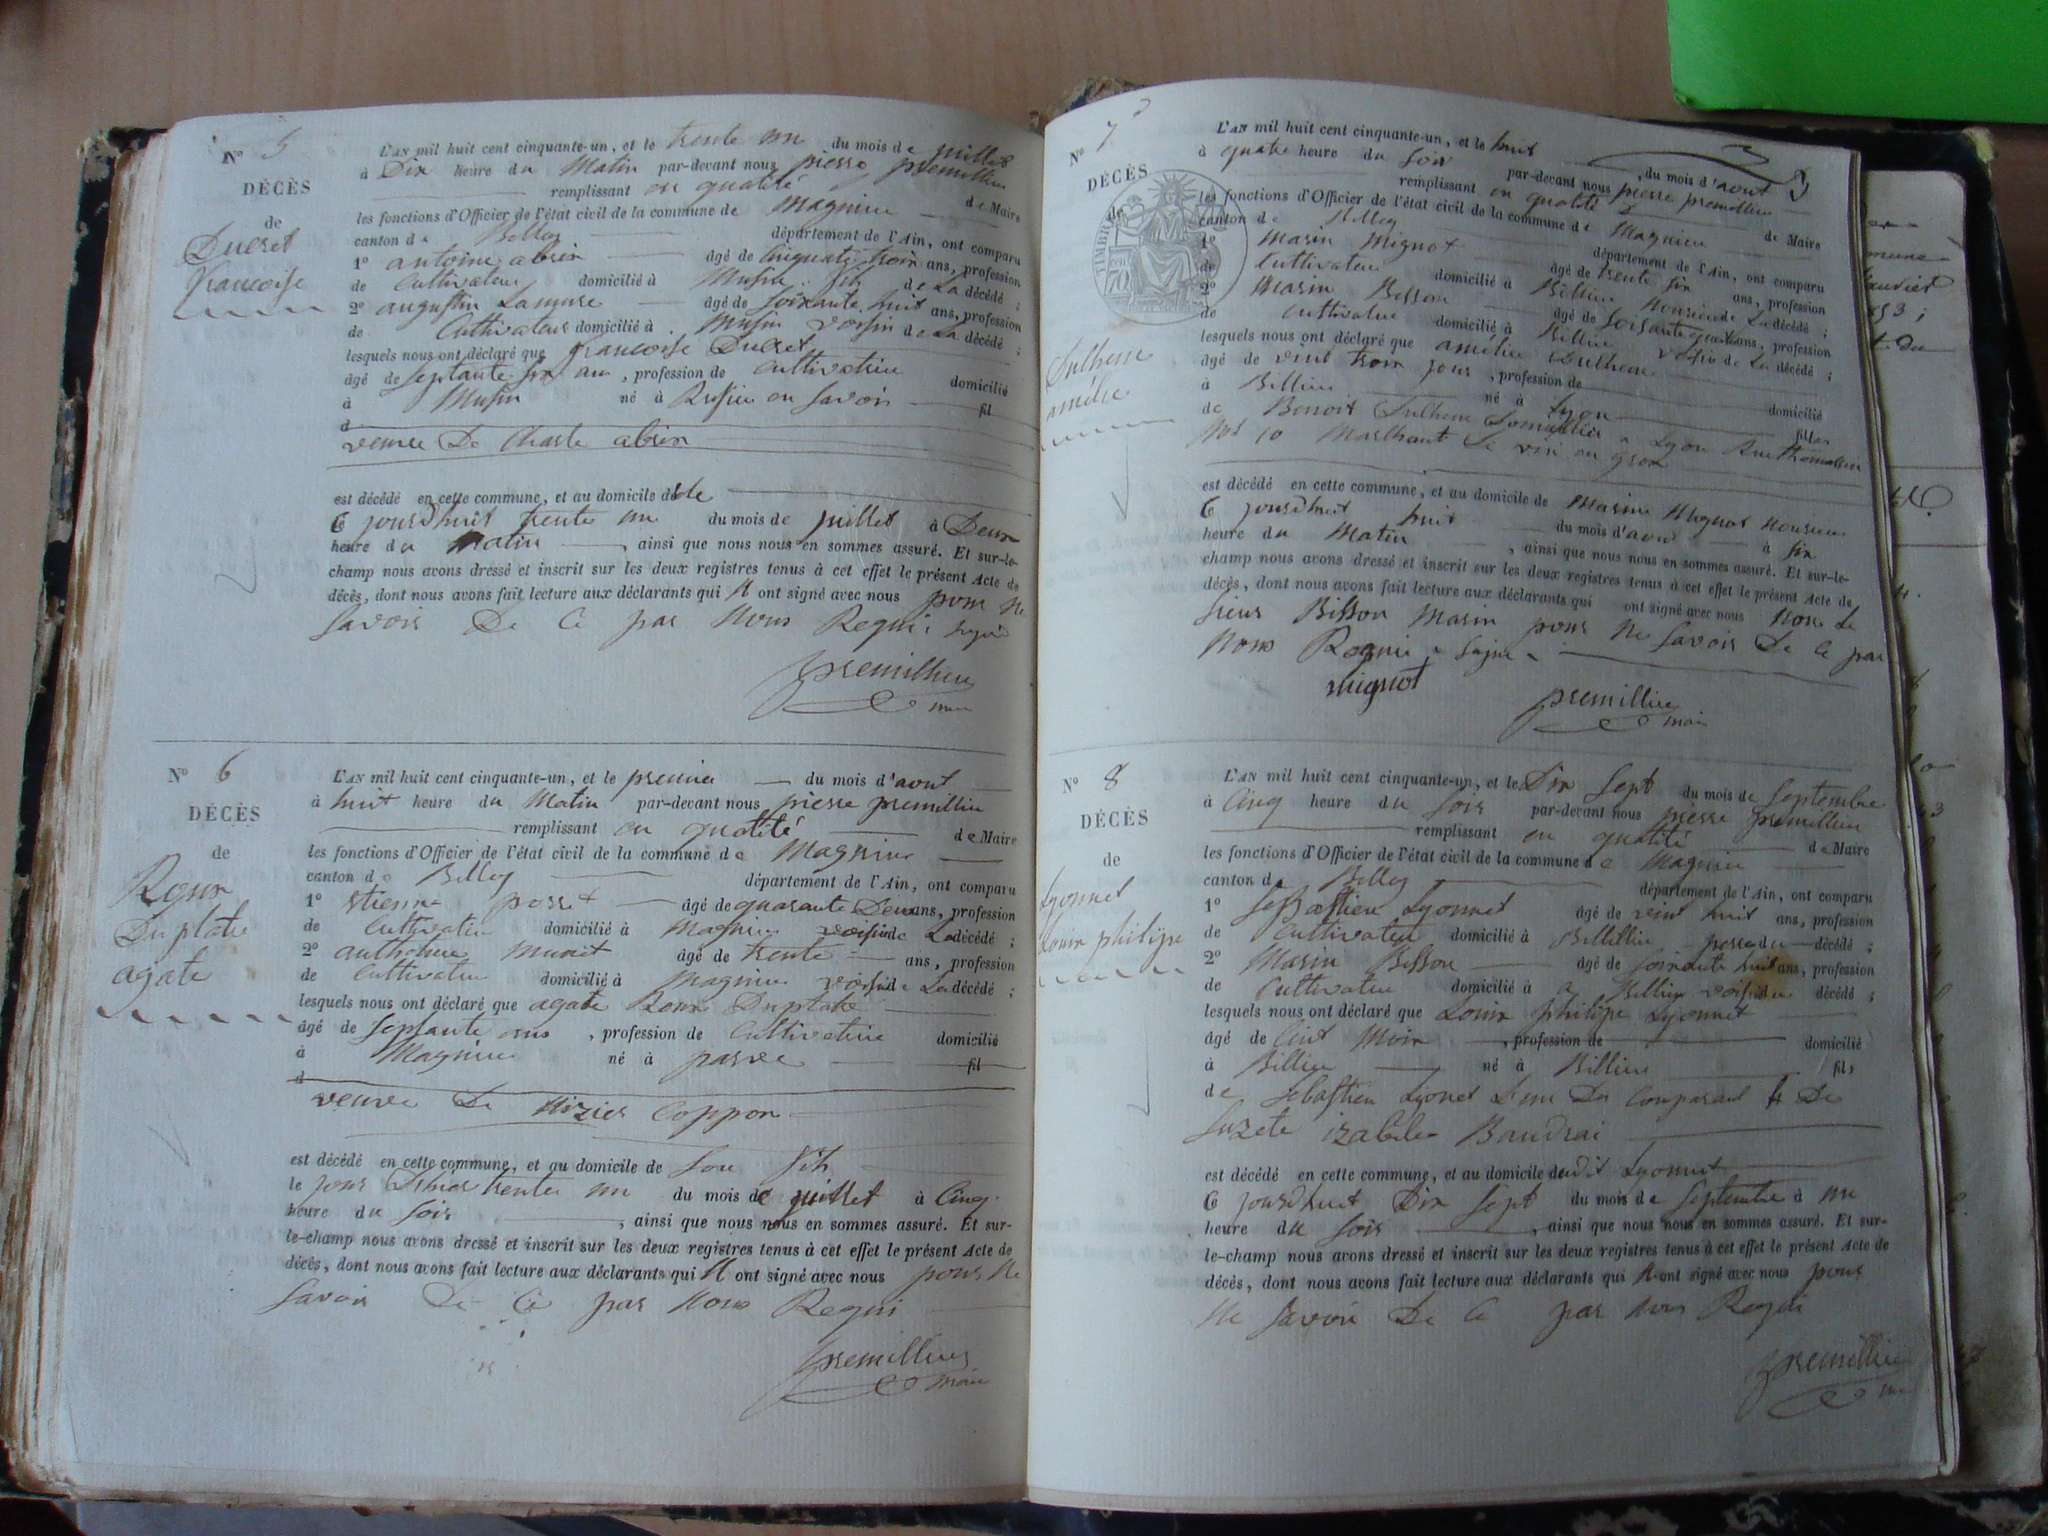 N° 5
DÉCÈS
de
Ducret
francoise
L'AN mil huit cent cinquante-un, et le trente un du mois de juillet
à Dix heure du Matin par-devant nous pierre premillieu
remplissant en qualité de Maire
les fonctions d'Officier de l'état civil de la commune de Magnieu
canton de Belley département de l'Ain, ont comparu
1° antoine abrin âgé de Cinquate trois ans, profession
de Cultivateur domicilié à Musin fih de La décédé ;
2° augustin Lamure âgé de soixante huit ans, profession
de Cultivateur domicilié à Musin voisin de La décédé ;
lesquels nous ont déclaré que francoise Ducret
âgé de septante six ans, profession de Cultivatrice domicilié
à Musin né à en Savoir fil
d
veuve De Charle abrin
est décédé en cette commune, et au domicile de
Ce jourdhuit trente un du mois de juillet à Deux
heure du Matin, ainsi que nous nous en sommes assuré. Et sur-le-
champ nous avons dressé et inscrit sur les deux registres tenus à cet effet le présent Acte de
décès, dont nous avons fait lecture aux déclarants qui N ont signé avec nous pour ne
savoir De Ce par Nous Requi
premillieu
N° 6
DÉCÈS
de
Roux
Duplatre
agate
L'AN mil huit cent cinquante-un, et le premier du mois d'aout
à huit heure du Matin par-devant nous pierre premillieu
remplissant en qualité de Maire
les fonctions d'Officier de l'état civil de la commune de Magnieu
canton de Belley département de l'Ain, ont comparu
1° Etienne âgé de quarante Deux ans, profession
de Cultivateur domicilié à Magnieu voisin de La décédé ;
2° âgé de trente ans, profession
de Cultivateur domicilié à Magnieu voisin de La décédé ;
lesquels nous ont déclaré que agate Roux Duplatre
âgé de septante ans, profession de Cultivatrice domicilié
à Magnieu né à parve fil
d
veuve De Nizier Coppon
est décédé en cette commune, et au domicile de son fih
le jour Dhier trente un du mois de juillet à Cinq
heure du soir, ainsi que nous nous en sommes assuré. Et sur-
le-champ nous avons dressé et inscrit sur les deux registres tenus à cet effet le présent Acte de
décès, dont nous avons fait lecture aux déclarants qui N ont signé avec nous pour ne
savoir De Ce par Nous Requi
premillieu
maire
N° 7
DÉCÈS
de
amélie
L'AN mil huit cent cinquante-un, et le huit du mois d'aout
à quatre heure du soir par-devant nous pierre premillieu
remplissant en qualité de Maire
les fonctions d'Officier de l'état civil de la commune de Magnieu
canton de Belley département de l'Ain, ont comparu
1° Marin Mignot âgé de trente six ans, profession
de Cultivateur domicilié à Billieu de La décédé ;
2° Marin Bisson âgé de soisante quatre ans, profession
de Cultivateur domicilié à Billieu voisin de La décédé ;
lesquels nous ont déclaré que amélie
âgé de vint trois jours, profession de domicilié
à Billieu né à Lyon fille
de Benoit a Lyon
No 10 Marchant De vin en gros
est décédé en cette commune, et au domicile de Marin Mignot
Ce jourdhuit huit du mois d'aout à six
heure du Matin, ainsi que nous nous en sommes assuré. Et sur-le-
champ nous avons dressé et inscrit sur les deux registres tenus à cet effet le présent Acte de
décès, dont nous avons fait lecture aux déclarants qui ont signé avec nous Non Le
sieur Bisson Marin pour ne savoir De Ce par
Nous Requi a signé
mignot
premillieu
maire
N° 8
DÉCÈS
de
Lyonnet
Louis philipe
L'AN mil huit cent cinquante-un, et le Dix Sept du mois de Septembre
à Cinq heure du soir par-devant nous pierre premillieu
remplissant en qualité de Maire
les fonctions d'Officier de l'état civil de la commune de Magnieu
canton de Belley département de l'Ain, ont comparu
1° Sebastien Lyonnet âgé de vint huit ans, profession
de Cultivateur domicilié à Billieu perre du décédé ;
2° Marin Bisson âgé de soixante huit ans, profession
de Cultivateur domicilié à a Billieu voisin du décédé ;
lesquels nous ont déclaré que Louis philipe Lyonnet
âgé de Moix, profession de domicilié
à Billieu né à Billieu fils
de Sebastien Lyonet Lun Des Comparant & De
Suzete izabelle Baudrai
est décédé en cette commune, et au domicile dudit Lyonnet
Ce jourdhuit Dix Sept du mois de Septembre à un
heure du soir, ainsi que nous nous en sommes assuré. Et sur-
le-champ nous avons dressé et inscrit sur les deux registres tenus à cet effet le présent Acte de
décès, dont nous avons fait lecture aux déclarants qui N ont signé avec nous pour
Ne savoir De Ce par Nous Requi
premillieu